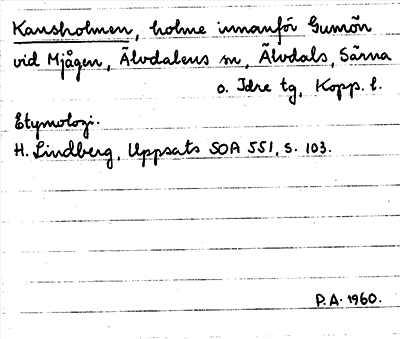 Kansholmen, holme innanför Gumön
vid Mjågen, Älvdalens sn, Älvdals, Särna
o. Idre tg, Kopp. l.
Etymologi.
H. Lindberg, Uppsats SOA 551, s. 103.
P.A. 1960.